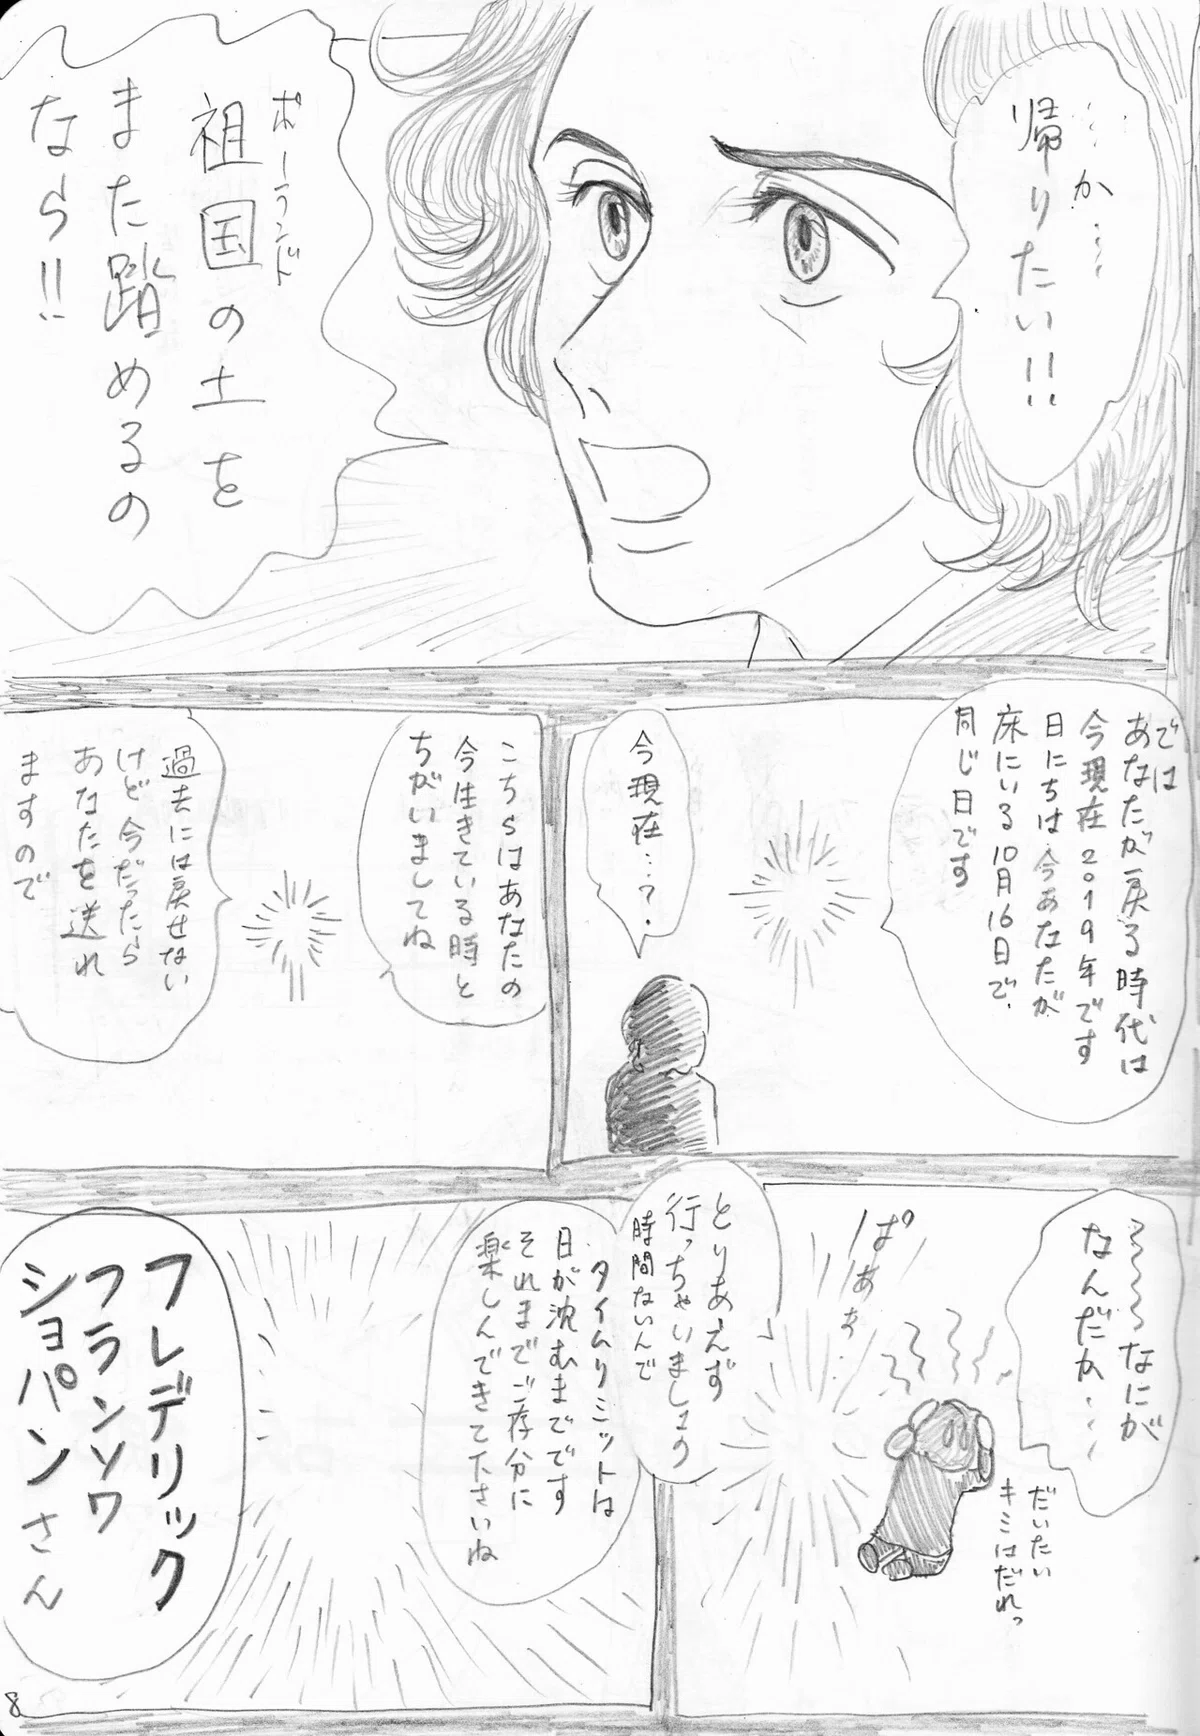 ……か……
帰りたい!!
ポーランド
祖国の土を
また踏めるの
なら!!
では
あなたが戻る時代は
今現在2019年です
日にちは今あなたが
床にいる10月16日で、
同じ日です
今現在…?
こちらはあなたの
今生きている時と
ちがいましてね
過去には戻せない
けど今だったら
あなたを送れ
ますので
なにが
なんだか……
だいたい
キミはだれっ
ぱあぁ
とりあえず
行っちゃいましょう
時間ないんで
タイムリミットは
日が沈むまでです
それまでご存分に
楽しんできて下さいね
フレデリック
フランソワ
ショパンさん
8